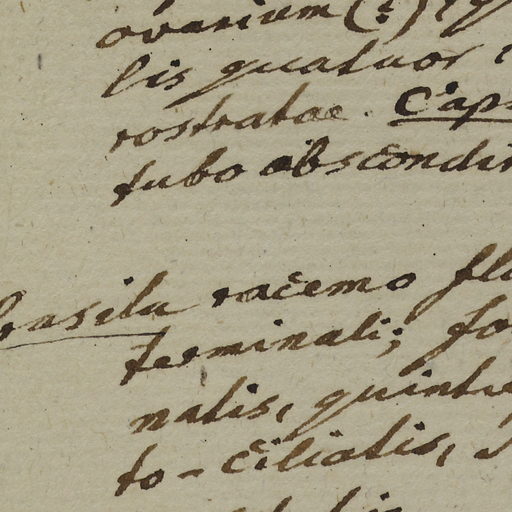 ovarium (?)
lis quatuor
rostratae. Cap
tubo abscondi
racemo fl
terminali; fo
natis, quintu
to-ciliatis,